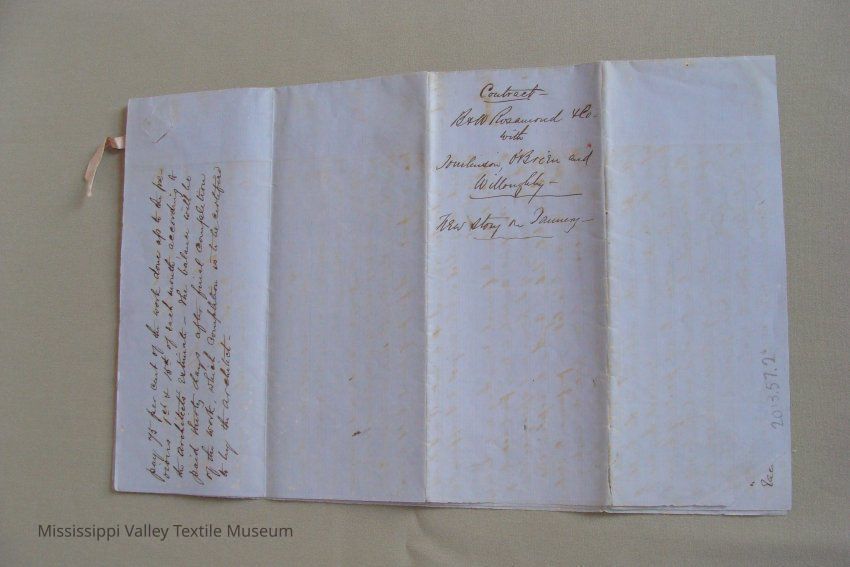 Contract-
B & W Rosamond & Co-
with
Tomlinson, O'Brien and
Willoughby-
New story on Tannery-
pay 75 per cent of the work done up to the pre-
vious 1st & 15th of each month according to
the Architects estimate- The balance will be
paid thirty days after final completion
of the work, which completion is to be certified
to by the Architect-
2013.57.2
Mississippi Valley Textile Museum